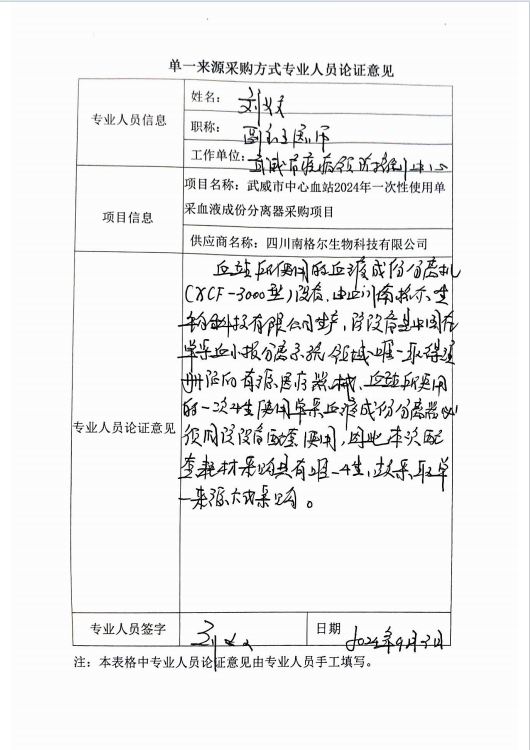 单一来源采购方式专业人员论证意见
专业人员信息
姓名：刘
职称：副主任医师
工作单位：武威市疾病预防控制中心
项目信息
项目名称：武威市中心血站2024年一次性使用单
采血液成份分离器采购项目
供应商名称：四川南格尔生物科技有限公司
专业人员论证意见
血站所使用的血液成份分离机
(XCF-3000型)设备，由四川南格尔生
物科技有限公司生产，该设备是中国在
单采血小板分离系统领域唯一取得注
册证的有源医疗器械，血站所使用
的一次性使用单采血液成份分离器必
须同该设备配套使用，因此本次配
套耗材采购具有唯一性，故采取单
一来源方式采购。
专业人员签字
刘
日期
2024年9月3日
注：本表格中专业人员论证意见由专业人员手工填写。